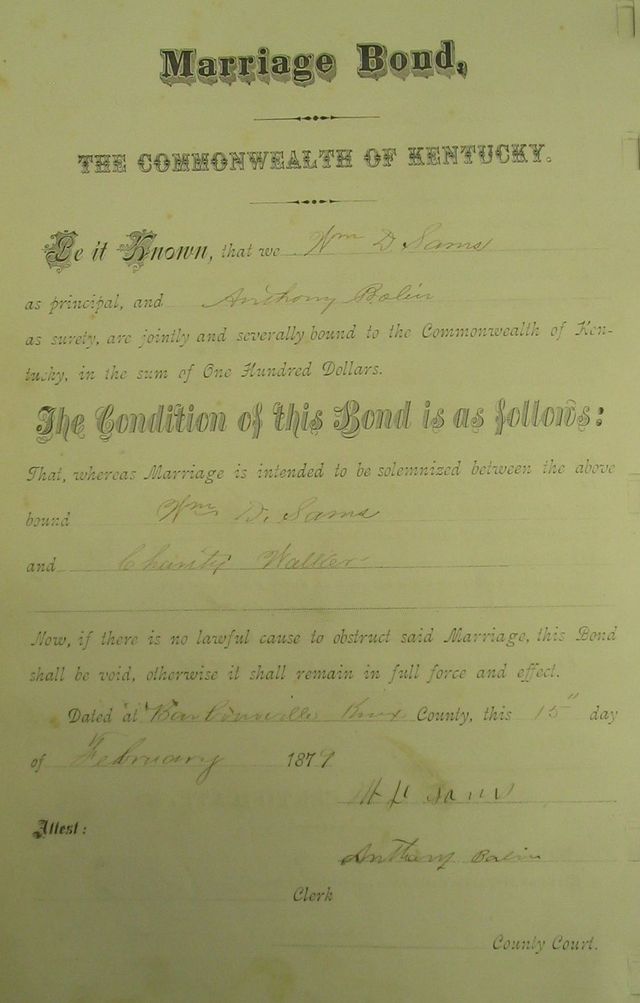 Marriage Bond,
THE COMMONWEALTH OF KENTUCKY.
Be it Known, that we Wm D Sams
as principal, and Anthony Bolin
as surety, are jointly and severally bound to the Commonwealth of Ken-
tucky, in the sum of One Hundred Dollars.
The Condition of this Bond is as follows:
That, whereas Marriage is intended to be solemnized between the above
bound Wm D. Sams
and Charity Walker
Now, if there is no lawful cause to obstruct said Marriage, this Bond
shall be void, otherwise it shall remain in full force and effect.
Dated at Barbourville Knox County, this 15" day
of February 1879
W D Sams
Attest:
Anthony Bolin
Clerk
County Court.